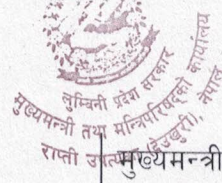 लुम्बिनी प्रदेश सरकार
मुख्यमन्त्री तथा मन्त्रिपरिषद्को कार्यालय
राप्ती उपत्यका (देउखुरी), नेपाल
मुख्यमन्त्री